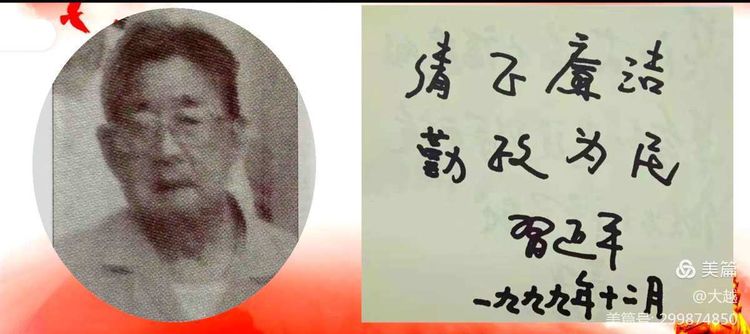 清正廉洁
勤政为民
习近平
一九九九年十二月
美篇
@大越
美篇号:299874850